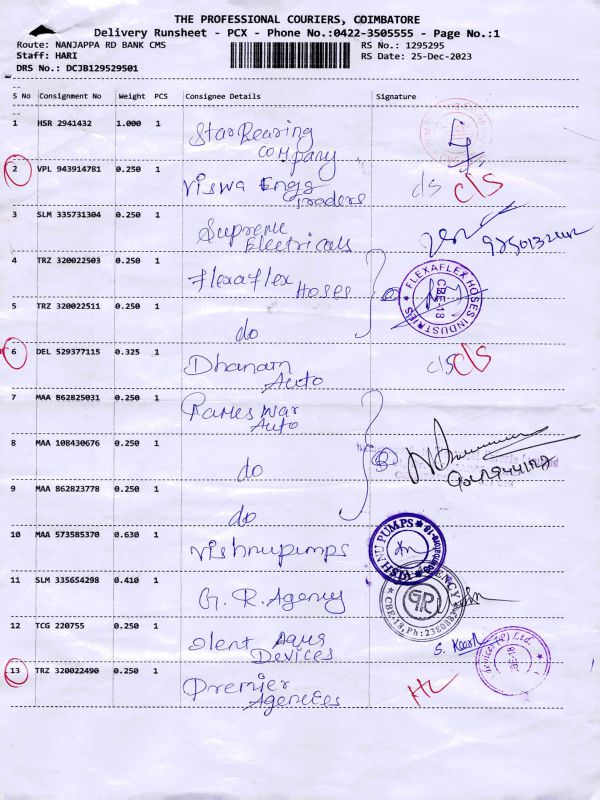 THE PROFESSIONAL COURIERS, COIMBATORE
Delivery Runsheet - PCX - Phone No.:0422-3505555 - Page No.:1
Route: NANJAPPA RD BANK CMS
RS No.: 1295295
Staff: HARI
RS Date: 25-Dec-2023
DRS No.: DCJB129529501
S No Consignment No Weight PCS Consignee Details Signature
1 HSR 2941432 1.000 1 Star Bearing
company
2 VPL 943914781 0.250 1 Viswa Engg c/s c/s
Traders
3 SLM 335731304 0.250 1 Supreme
Electricals
4 TRZ 320022503 0.250 1 Flexaflex
Hoses
FLEXAFLEX HOSES INDUSTRIES
CBE-18
5 TRZ 320022511 0.250 1 do
6 DEL 529377115 0.325 1 Dhanam c/s c/s
Auto
7 MAA 862825031 0.250 1 Rameswar
Auto
8 MAA 108430676 0.250 1 do
3
9 MAA 862823778 0.250 1 do
10 MAA 573585370 0.630 1 Vishnupumps
VISHNU PUMPS
11 SLM 335654298 0.410 1 G.R. Agency
12 TCG 220755 0.250 1 Aqua
Devices
13 TRZ 320022490 0.250 1 Premier
Agencies